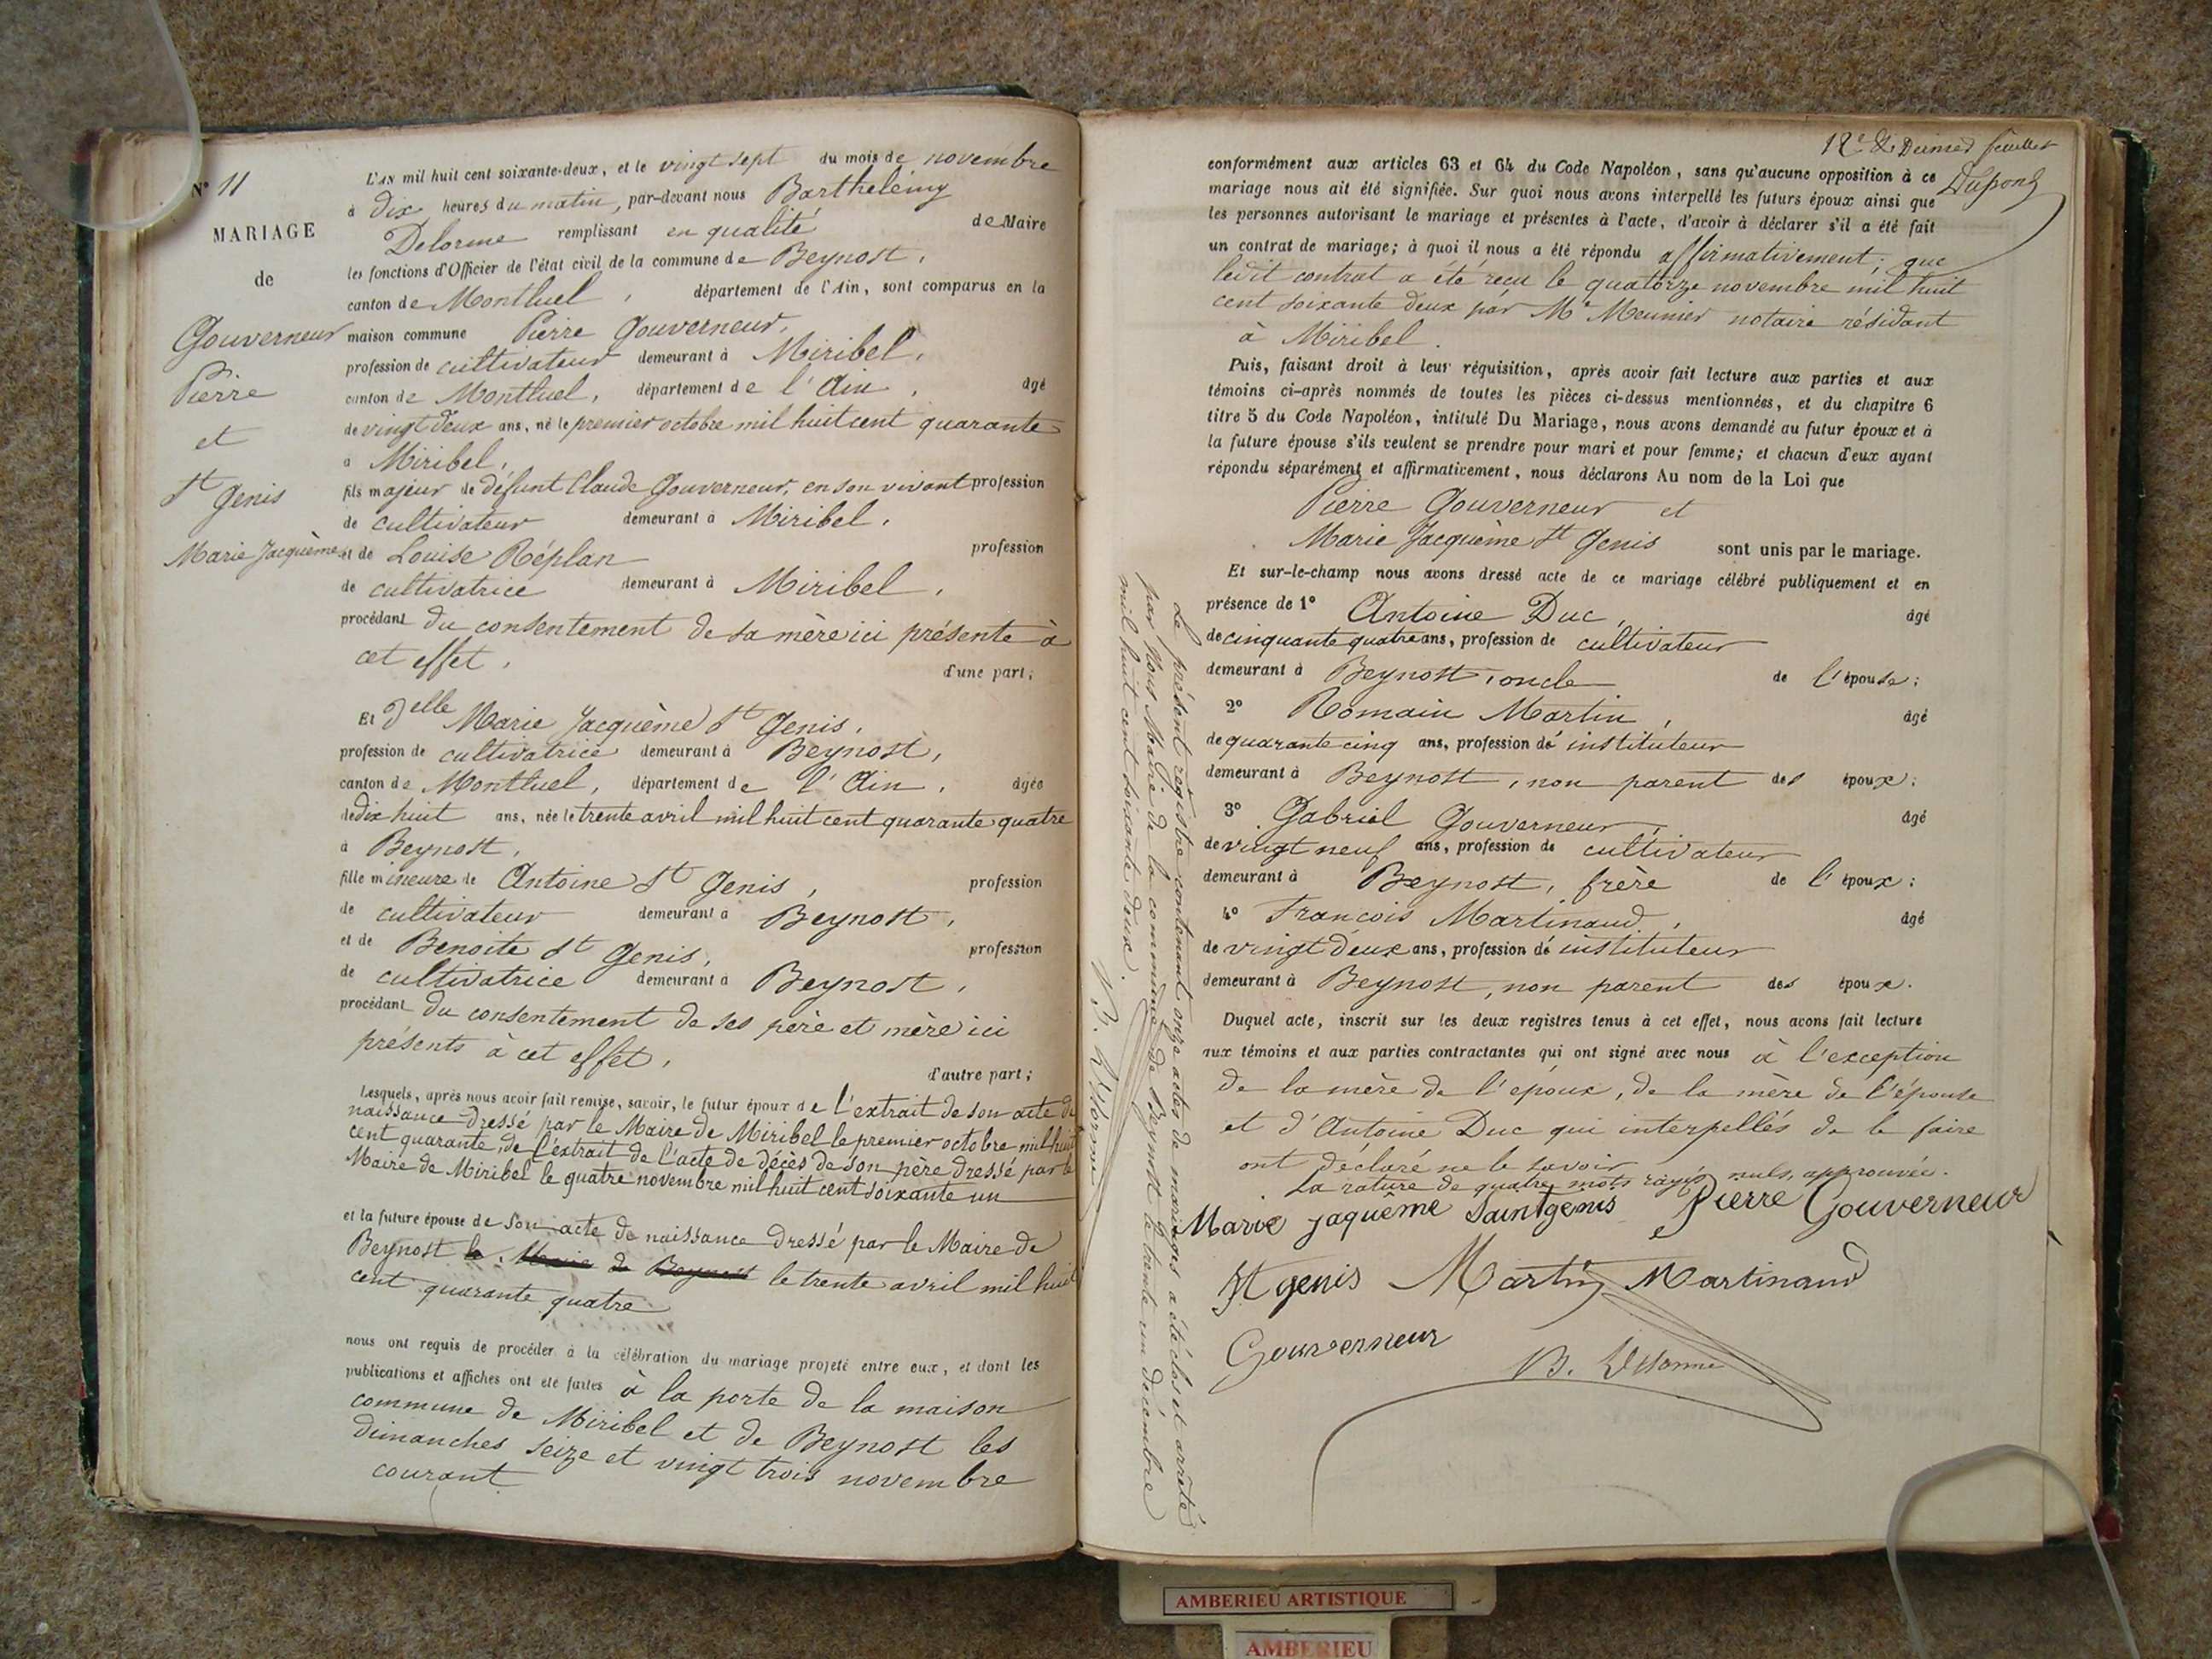 N° 11
MARIAGE
de
Gouverneur
Pierre
et
St Genis
Marie Jacquème
L'AN mil huit cent soixante-deux, et le vingt sept du mois de novembre
à dix heures du matin, par-devant nous Barthelémy
Delorme remplissant en qualité de Maire
les fonctions d'Officier de l'état civil de la commune de Beynost,
canton de Montluel, département de l'Ain, sont comparus en la
maison commune Pierre Gouverneur,
profession de cultivateur demeurant à Miribel,
canton de Montluel, département de l'Ain, âgé
de vingt deux ans, né le premier octobre mil huit cent quarante
à Miribel,
fils majeur de défunt Claude Gouverneur, en son vivant profession
de cultivateur demeurant à Miribel,
et de Louise Réplan profession
de cultivatrice demeurant à Miribel,
procédant du consentement de sa mère ici présente à
cet effet, d'une part;
Et Delle Marie Jacquème St Genis,
profession de cultivatrice demeurant à Beynost,
canton de Montluel, département de l'Ain, âgée
de dix huit ans, née le trente avril mil huit cent quarante quatre
à Beynost,
fille mineure de Antoine St Genis, profession
de cultivateur demeurant à Beynost,
et de Benoite St Genis, profession
de cultivatrice demeurant à Beynost,
procédant du consentement de ses père et mère ici
présents à cet effet, d'autre part;
Lesquels, après nous avoir fait remise, savoir, le futur époux de l'extrait de son acte de
naissance dressé par le Maire de Miribel le premier octobre mil huit
cent quarante, de l'extrait de l'acte de décès de son père dressé par le
Maire de Miribel le quatre novembre mil huit cent soixante un
et la future épouse de son acte de naissance dressé par le Maire de
Beynost le Maire de Beynost le trente avril mil huit
cent quarante quatre
nous ont requis de procéder à la célébration du mariage projeté entre eux, et dont les
publications et affiches ont été faites à la porte de la maison
commune de Miribel et de Beynost les
dimanches seize et vingt trois novembre
courant
12e & Dernier feuillet
Dupond
conformément aux articles 63 et 64 du Code Napoléon, sans qu'aucune opposition à ce
mariage nous ait été signifiée. Sur quoi nous avons interpellé les futurs époux ainsi que
les personnes autorisant le mariage et présentes à l'acte, d'avoir à déclarer s'il a été fait
un contrat de mariage; à quoi il nous a été répondu affirmativement; que
ledit contrat a été reçu le quatorze novembre mil huit
cent soixante deux par Me Meunier notaire résidant
à Miribel.
Puis, faisant droit à leur réquisition, après avoir fait lecture aux parties et aux
témoins ci-après nommés de toutes les pièces ci-dessus mentionnées, et du chapitre 6
titre 5 du Code Napoléon, intitulé Du Mariage, nous avons demandé au futur époux et à
la future épouse s'ils veulent se prendre pour mari et pour femme; et chacun d'eux ayant
répondu séparément et affirmativement, nous déclarons Au nom de la Loi que
Pierre Gouverneur et
Marie Jacquème St Genis sont unis par le mariage.
Et sur-le-champ nous avons dressé acte de ce mariage célébré publiquement et en
présence de 1° Antoine Duc, âgé
de cinquante quatre ans, profession de cultivateur
demeurant à Beynost, oncle de l'épouse;
2° Romain Martin, âgé
de quarante cinq ans, profession de instituteur
demeurant à Beynost, non parent des époux;
3° Gabriel Gouverneur, âgé
de vingt neuf ans, profession de cultivateur
demeurant à Beynost, frère de l'époux;
4° François Martinaud, âgé
de vingt deux ans, profession de instituteur
demeurant à Beynost, non parent des époux.
Duquel acte, inscrit sur les deux registres tenus à cet effet, nous avons fait lecture
aux témoins et aux parties contractantes qui ont signé avec nous à l'exception
de la mère de l'époux, de la mère de l'épouse
et d'Antoine Duc qui interpellés de le faire
ont déclaré ne le savoir
La rature de quatre mots rayés nuls, approuvée.
Marie jaquême Saintgenis Pierre Gouverneur
St genis Martin Martinaud
Gouverneur
B. Delorme
Le présent registre contenant onze actes de mariages a été clos et arrêté
par Nous Maire de la commune de Beynost le trente un décembre
mil huit cent soixante deux.
B. Delorme
AMBERIEU ARTISTIQUE
AMBERIEU